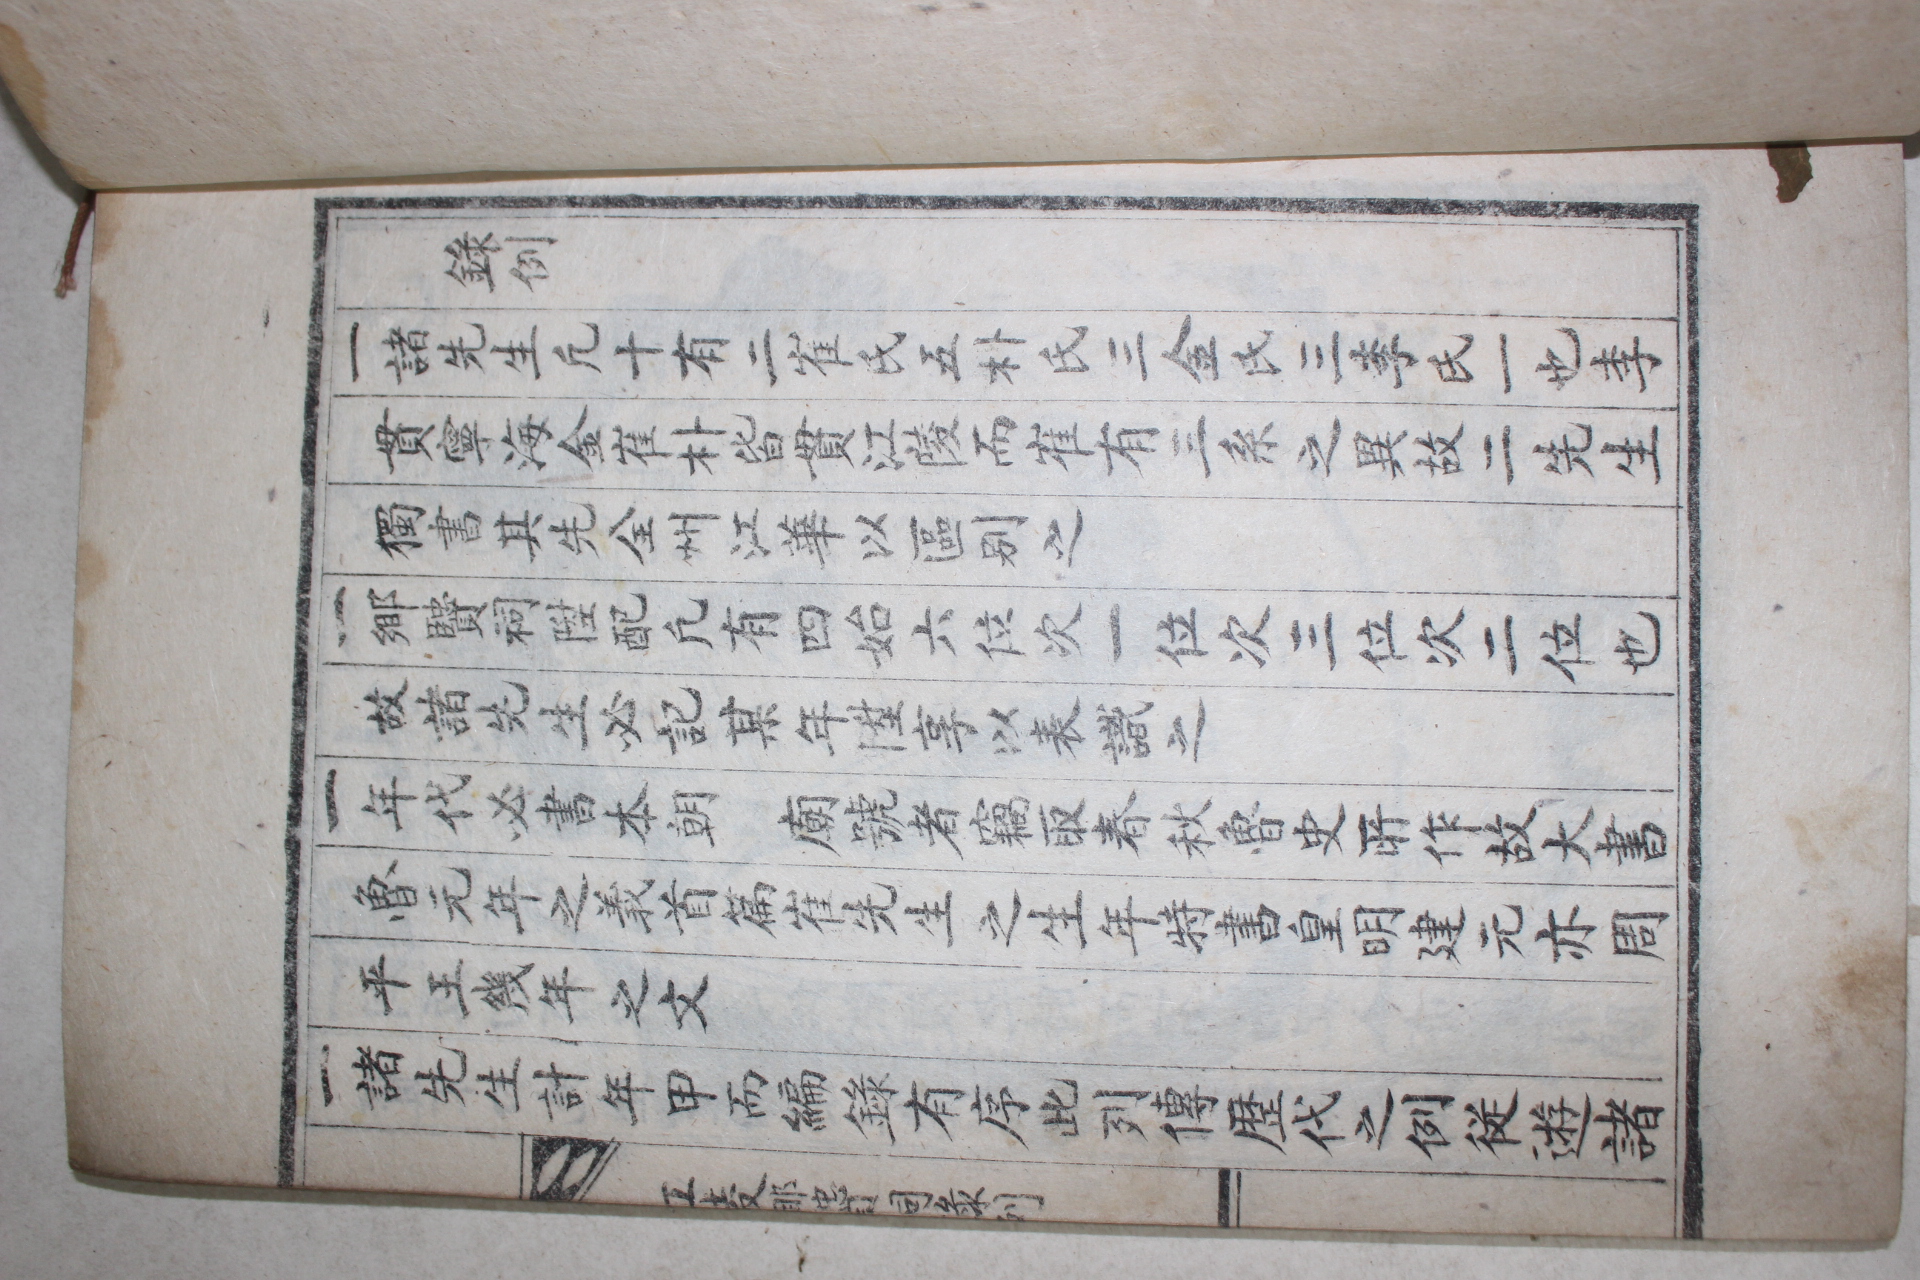 錄例
一諸先生凡十有二崔氏五朴氏三金氏三李氏一也李
貫寧海金崔朴皆貫江陵而崔有三系之異故二先生
獨書其先全州江華以區別之
一鄕賢祠陞配凡有四始六位次一位次三位次二位也
故諸先生必記某年陞享以表識之
一年代必書本朝 廟號者竊取春秋魯史所作故大書
魯元年之義首篇崔先生之生年特書皇明建元亦周
平王幾年之文
一諸先生計年甲而編錄有序此列傳歷代之例從遊諸
江陵鄕賢祠錄例